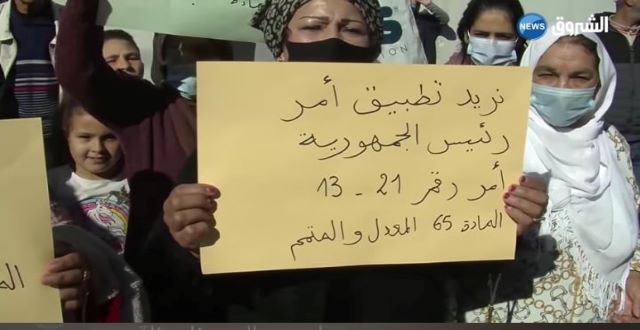 NEWS الشروق
المادة
نريد تطبيق أمر
رئيس الجمهورية
أمر رقم 21 - 13
المادة 65 المعدل والمتمم